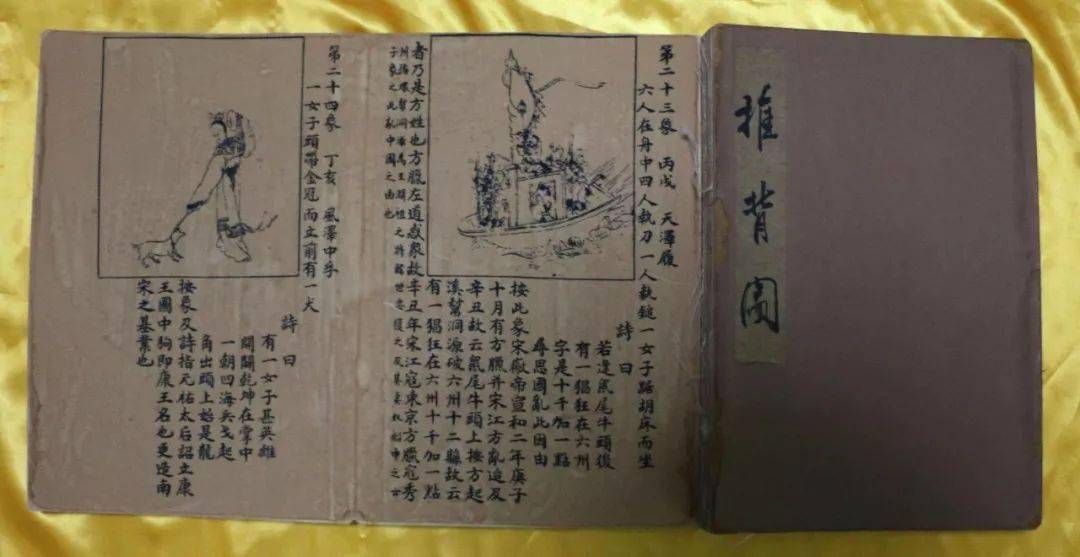 推背圖
第二十三象 丙戌 天澤履
六人在舟中四人執刀一人執鎚一女子踞胡床而坐
詩曰
若逢鼠尾牛頭後
有一猖狂在六州
字是十千加一點
尋思國亂此因由
按此象宋徽帝宣和二年庚子
十月有方臘并宋江方亂迨及
辛丑故云鼠尾牛頭上按方起
溪幫洞源破六州十二縣故云
有一猖狂在六州十千加一點
者乃是方姓也方臘左道惑衆故辛丑年宋江寇東京方臘寇秀
子象之此亂中國之由也
第二十四象 丁亥 風澤中孚
一女子頭帶金冠而立前有一犬
詩曰
有一女子甚英雄
開闢乾坤在掌中
一朝四海兵戈起
角出頭上始是龍
按象及詩指元祐太后詔立康
王圖中狗即康王名也更造南
宋之基業也